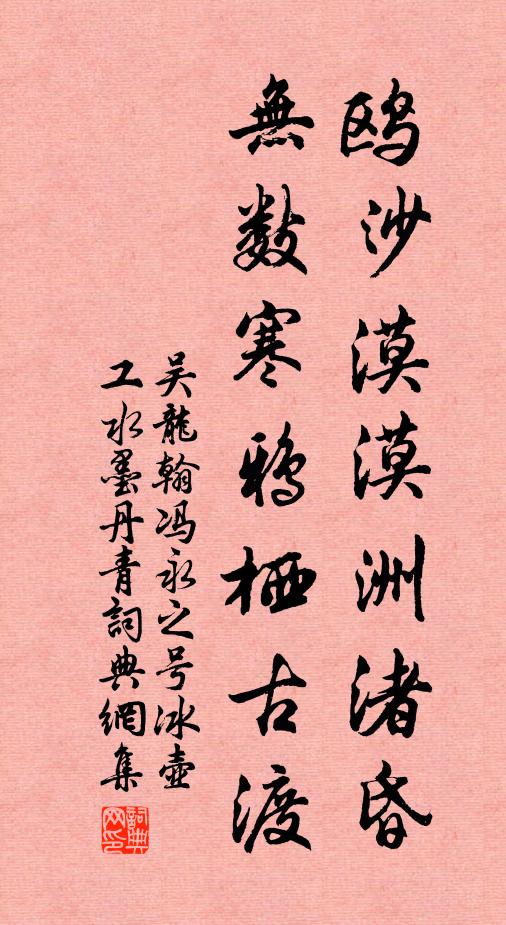 鸥沙漠漠洲渚昏
無数寒鸦栖古渡
吴龍翰冯永之号冰壶
工水墨丹青詞典網集
詞典网印